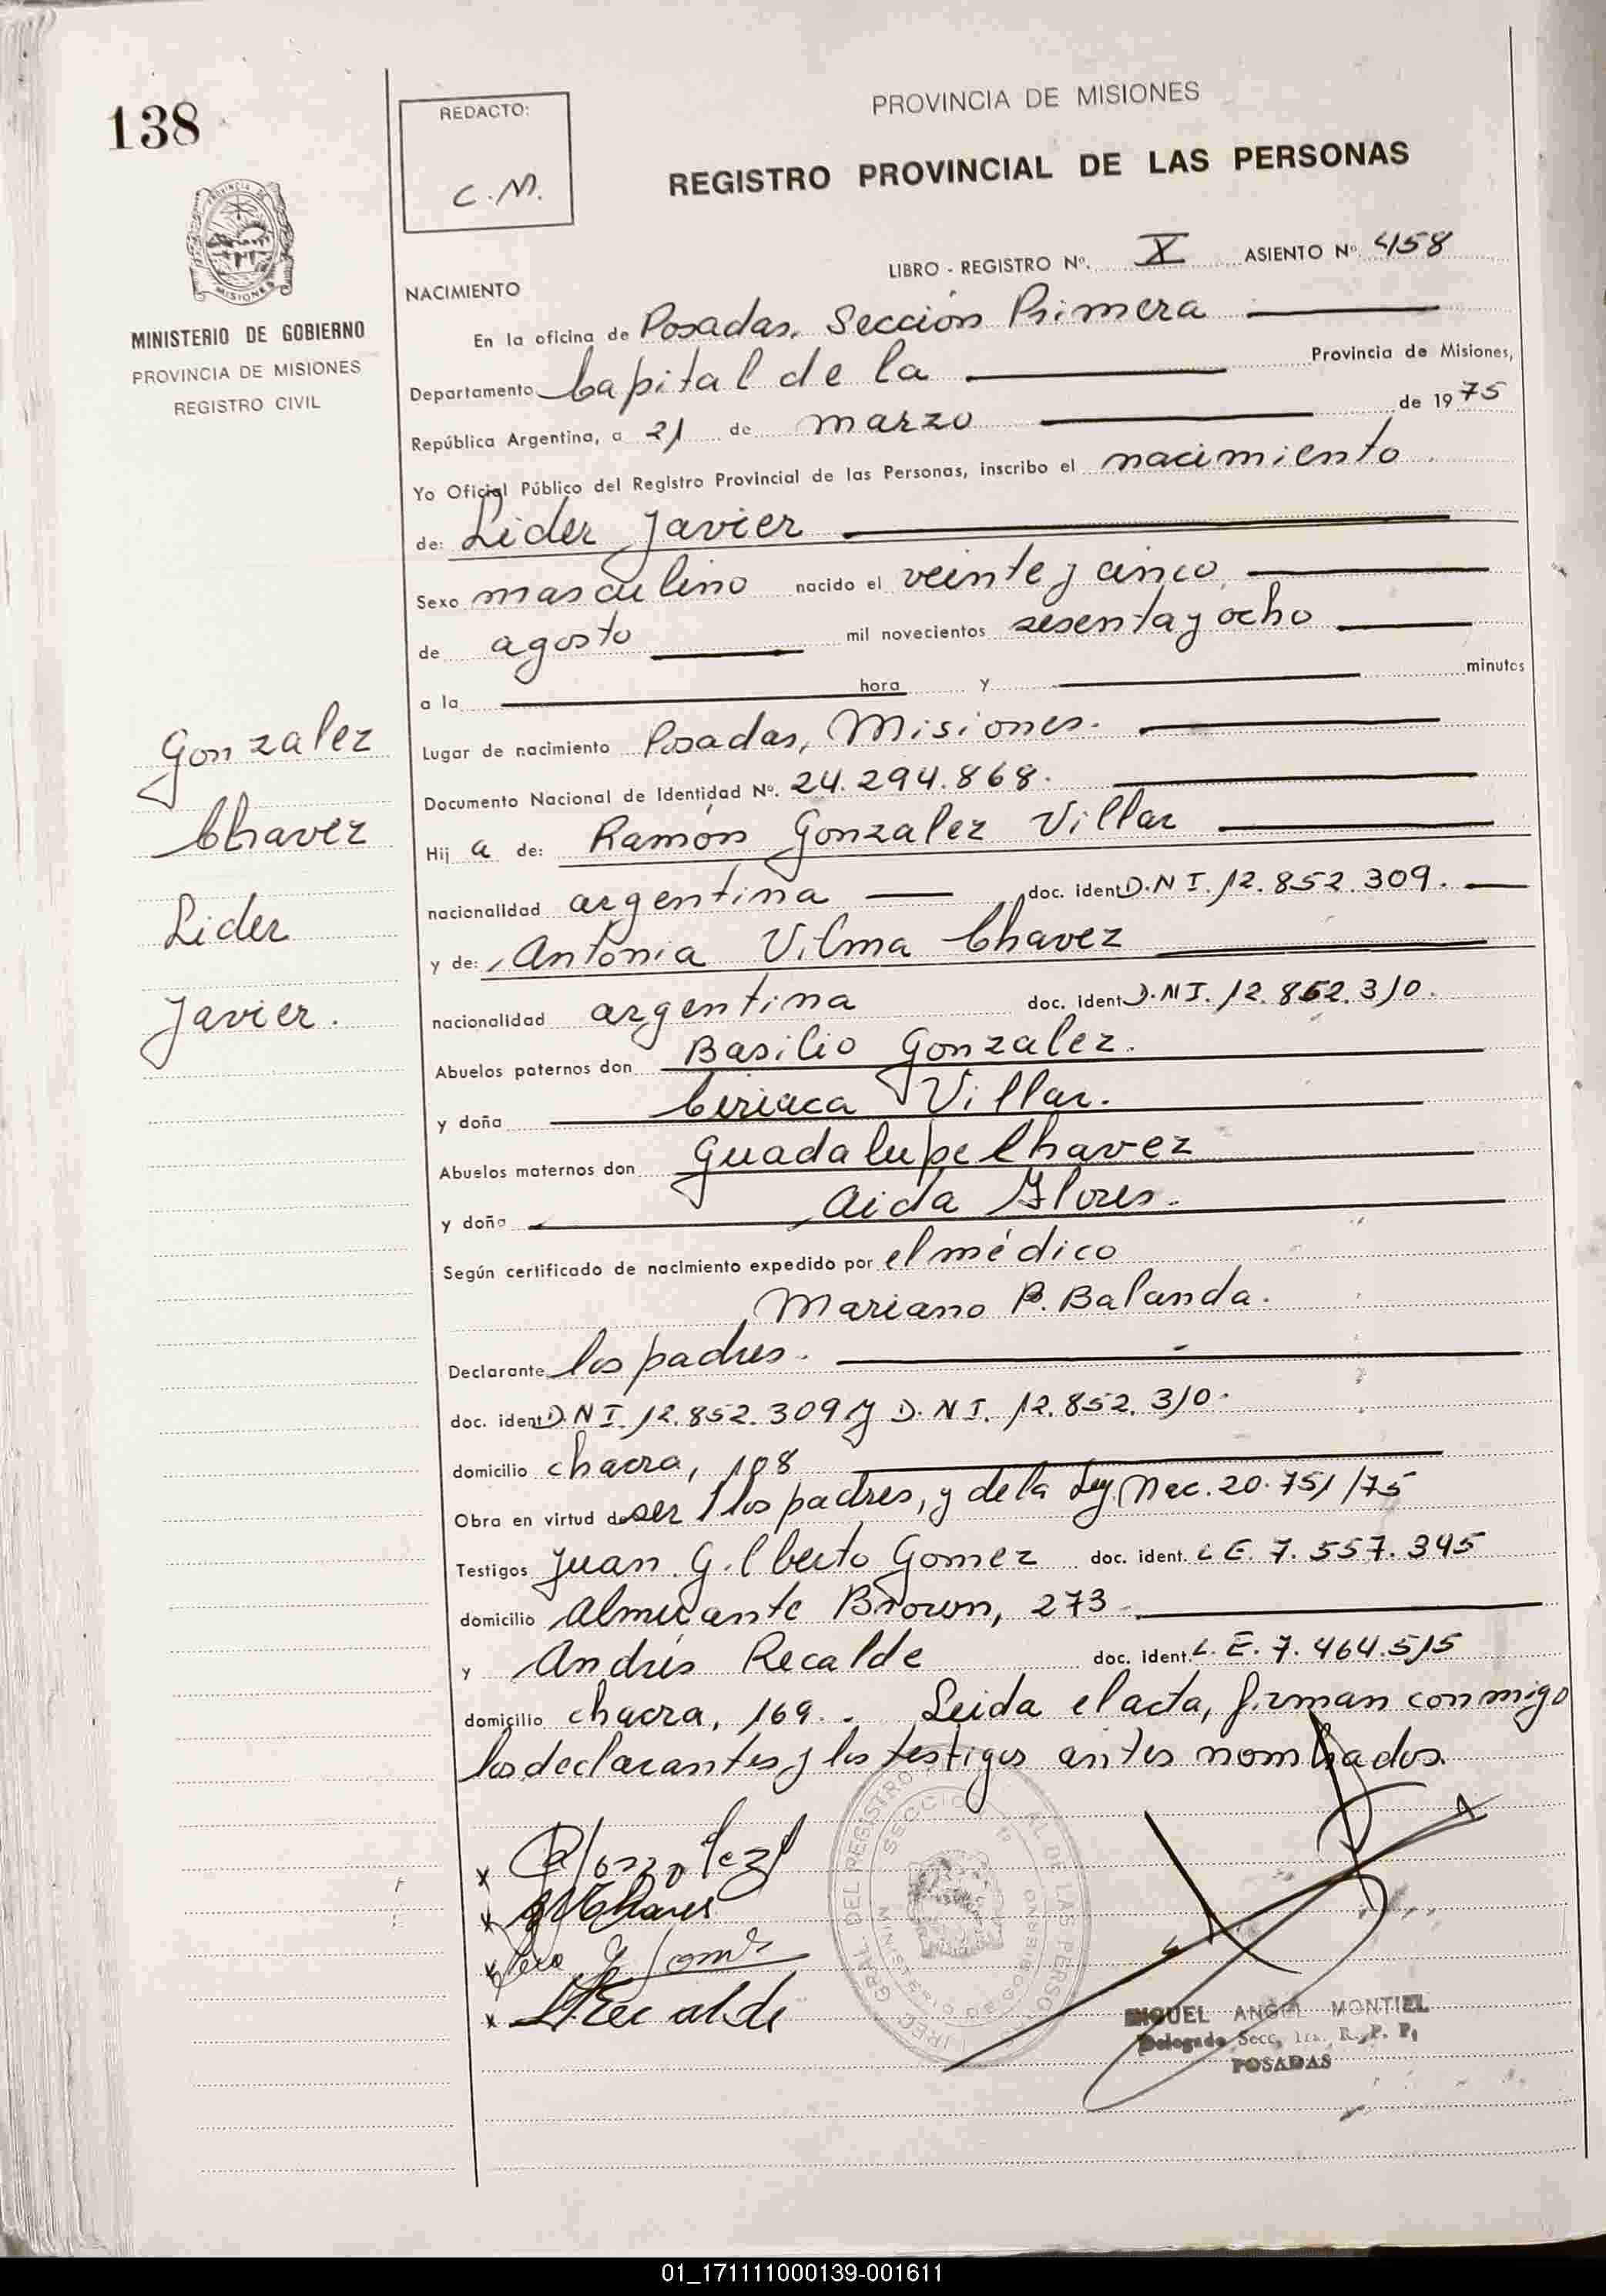 138
REDACTO:
C.M.
PROVINCIA DE MISIONES
REGISTRO PROVINCIAL DE LAS PERSONAS
LIBRO - REGISTRO Nº. X ASIENTO Nº. 458
MINISTERIO DE GOBIERNO
PROVINCIA DE MISIONES
REGISTRO CIVIL
NACIMIENTO
En la oficina de Posadas, Sección Primera
Departamento Capital de la Provincia de Misiones,
República Argentina, a 21 de marzo de 1975
Yo Oficial Público del Registro Provincial de las Personas, inscribo el nacimiento
de: Lider Javier
Sexo masculino nacido el veinte y cinco
de agosto mil novecientos sesenta y ocho
a la hora y minutos
Gonzalez
Chavez
Lider
Javier.
Lugar de nacimiento Posadas, Misiones.
Documento Nacional de Identidad Nº. 24.294.868.
Hij a de: Ramón Gonzalez Villar
nacionalidad argentina doc. ident D.N I. 12.852.309.
y de: Antonia Vilma Chavez
nacionalidad argentina doc. ident D.N I. 12.852.310.
Abuelos paternos don Basilio Gonzalez.
y doña Ciriaca Villar.
Abuelos maternos don Guadalupe Chavez
y doña Aida Flores.
Según certificado de nacimiento expedido por el médico
Mariano P. Balanda.
Declarante los padres.
doc. ident D.N I. 12.852.309 y D.N I. 12.852.310.
domicilio chacra, 108
Obra en virtud de ser los padres, y de la Ley Nac. 20.751/75
Testigos Juan Gilberto Gomez doc. ident. L E. 7.557.345
domicilio Almirante Brown, 273
y Andrés Recalde doc. ident. L. E. 7.464.515
domicilio chacra, 169. Leida el acta, firman conmigo
los declarantes y los testigos antes nombrados.
MIGUEL ANGEL MONTIEL
Delegado Secc. 1ra. R. P. P.
POSADAS
01_171111000139-001611